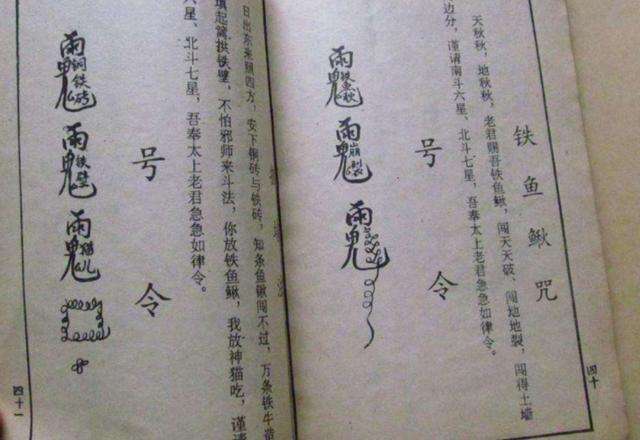 铁鱼鳅咒
天秋秋,地秋秋,老君赐吾铁鱼鳅,闯天天破、闯地地裂,闯得土墙
边分,谨请南斗六星、北斗七星,吾奉太上老君急急如律令。
号令
雨鬼铁鱼鳅
雨鬼崩裂
雨鬼
四十
日出东来照四方,安下铜砖与铁砖,知条鱼鳅闯不过,万条铁牛造
起篱拱铁壁,不怕邪师来斗法,你放铁鱼鳅,我放神猫吃,谨请
星、北斗七星,吾奉太上老君急急如律令。
号令
雨鬼铜铁砖
雨鬼铁壁
雨鬼猫儿
四十一